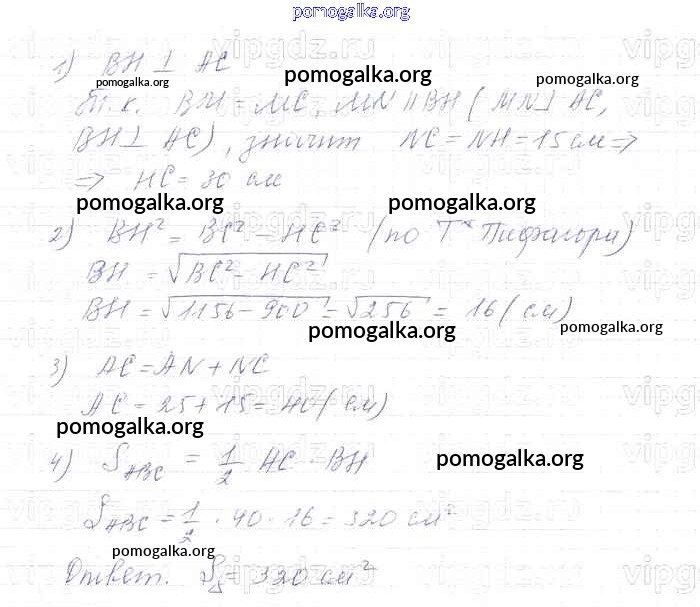 pomogalka.org
1) BH ⊥ AC
pomogalka.org
pomogalka.org
т.к. BM = MC, MN || BH ( MN ⊥ AC,
BH ⊥ AC), значит NC = NH = 15 см ⇒
⇒ HC = 30 см
pomogalka.org
pomogalka.org
2) BH² = BC² - HC² (по Т. Пифагора)
BH = √BC² - HC²
BH = √1156 - 900 = √256 = 16 (см)
pomogalka.org
pomogalka.org
3) AC = AN + NC
AC = 25 + 15 = 40 (см)
pomogalka.org
4) S ABC = 1/2 AC · BH
pomogalka.org
S ABC = 1/2 · 40 · 16 = 320 см²
pomogalka.org
Ответ. S△ = 320 см²